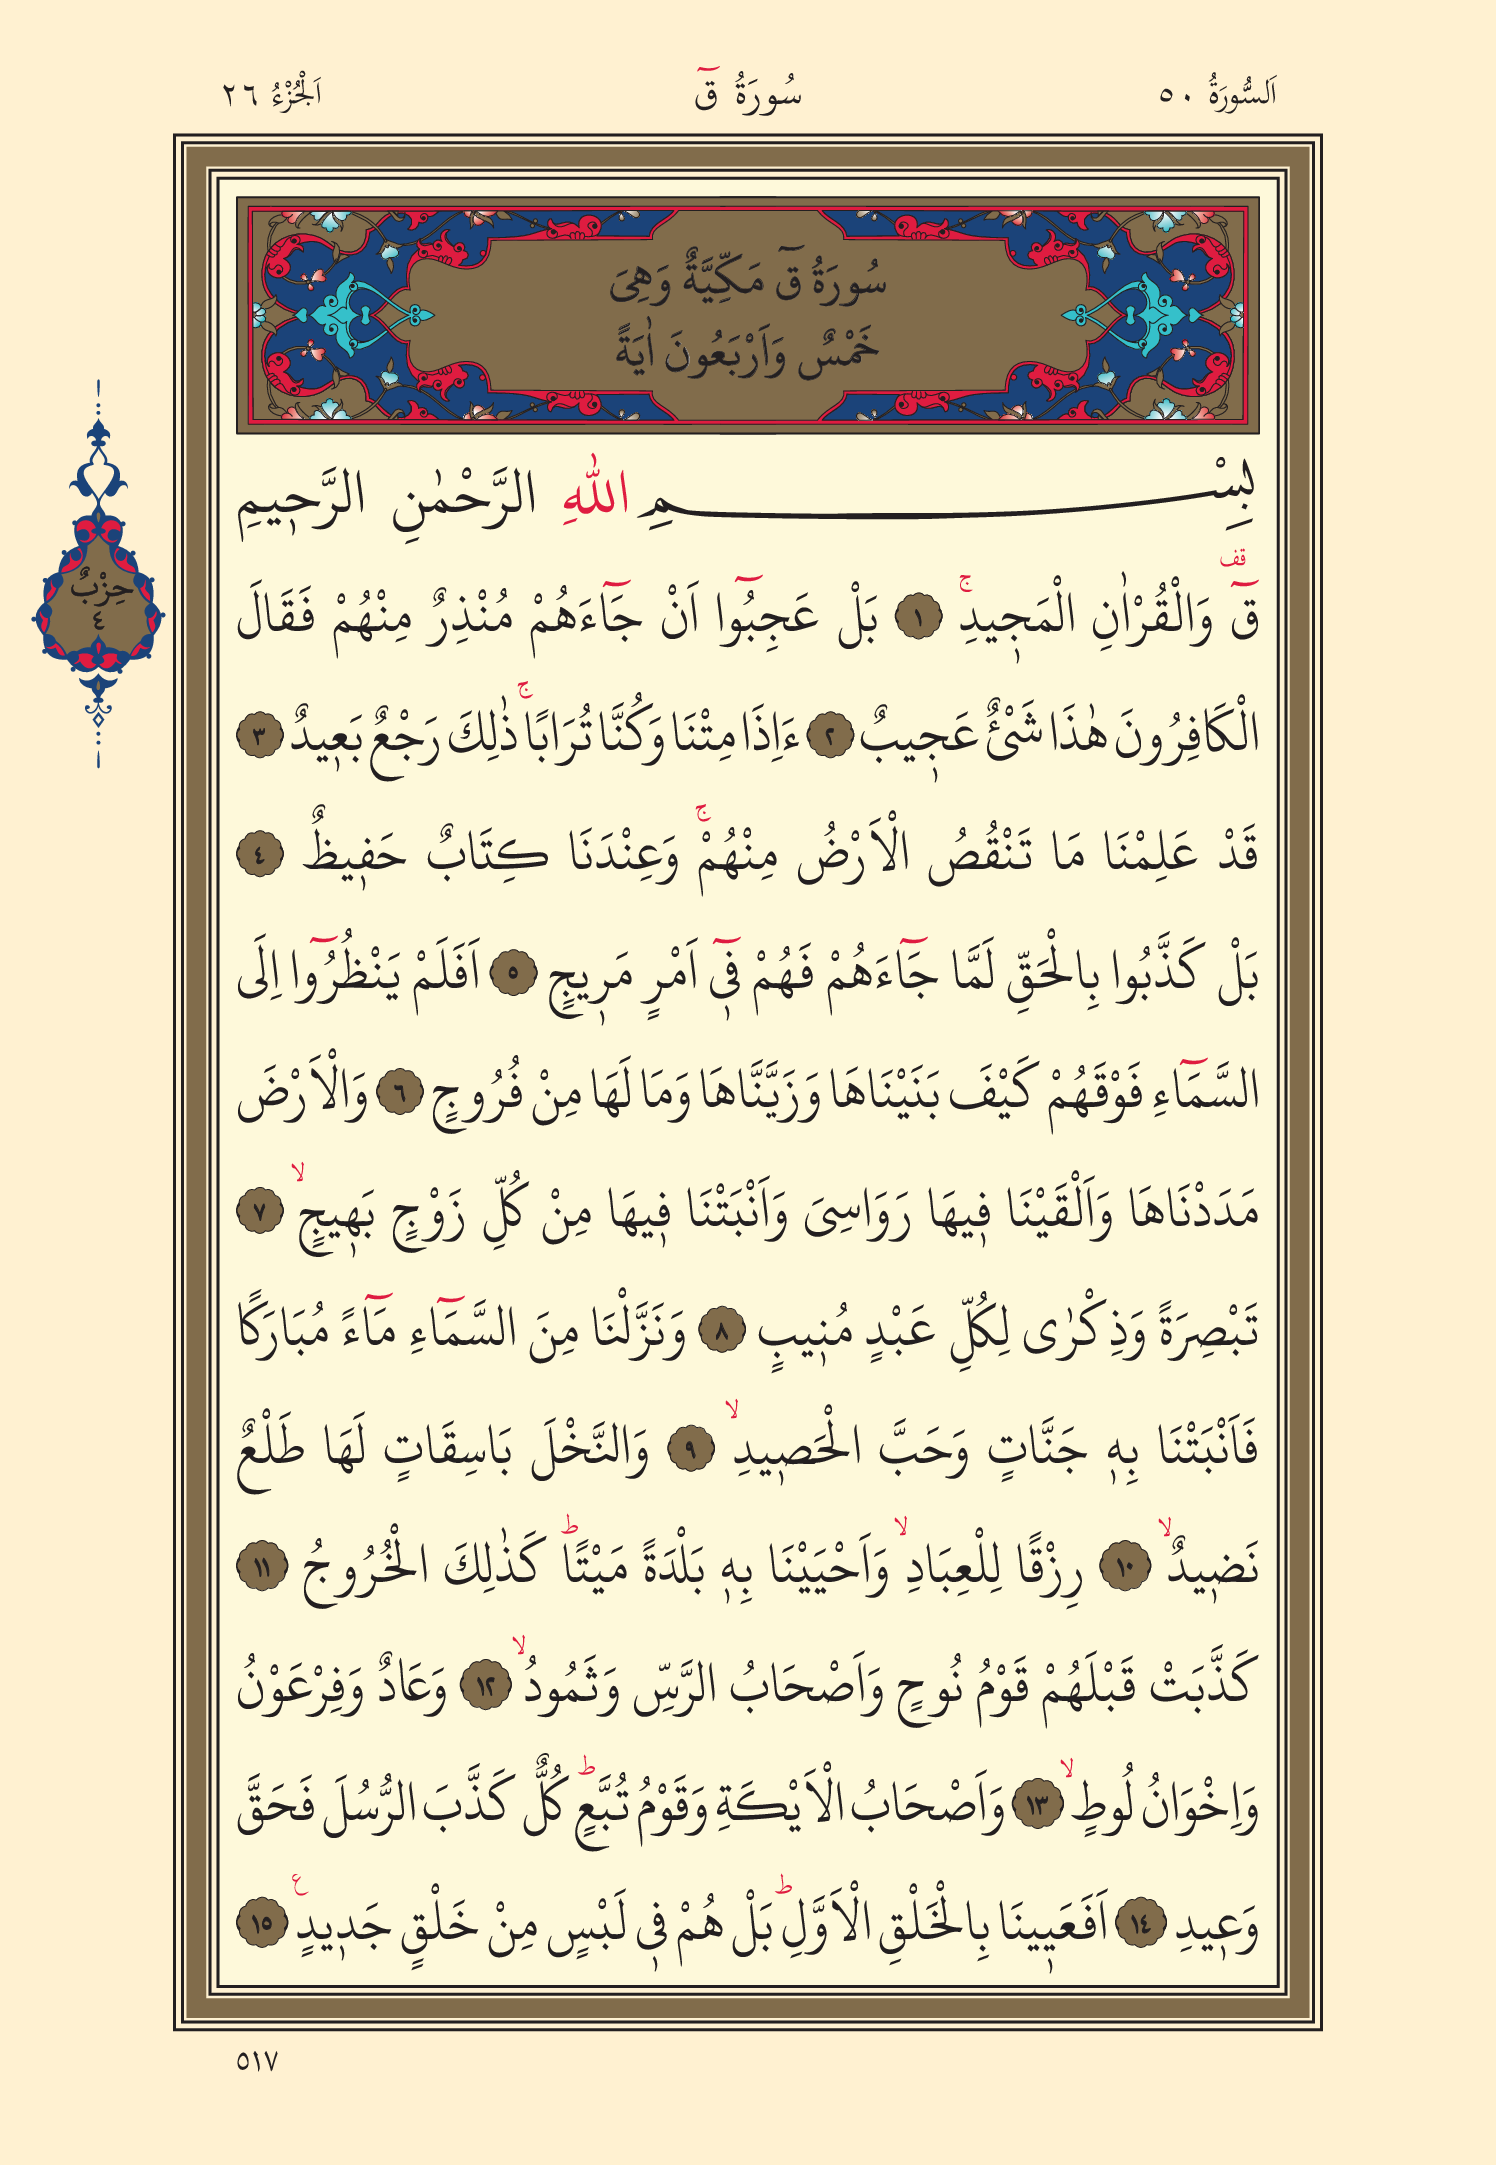 اَلسُّورَةُ ٥٠
سُورَةُ قٓ
اَلْجُزْءُ ٢٦
سُورَةُ قٓ مَكِّيَّةٌ وَهِىَ
خَمْسٌ وَاَرْبَعُونَ اٰيَةً
بِسْمِ اللّٰهِ الرَّحْمٰنِ الرَّحٖيمِ
قٓ قف وَالْقُرْاٰنِ الْمَجٖيدِۚ ١ بَلْ عَجِبُٓوا اَنْ جَٓاءَهُمْ مُنْذِرٌ مِنْهُمْ فَقَالَ
الْكَافِرُونَ هٰذَا شَیْءٌ عَجٖيبٌ ٢ ءَاِذَا مِتْنَا وَكُنَّا تُرَابًاۚ ذٰلِكَ رَجْعٌ بَعٖيدٌ ٣
قَدْ عَلِمْنَا مَا تَنْقُصُ الْاَرْضُ مِنْهُمْۚ وَعِنْدَنَا كِتَابٌ حَفٖيظٌ ٤
بَلْ كَذَّبُوا بِالْحَقِّ لَمَّا جَٓاءَهُمْ فَهُمْ فٖٓى اَمْرٍ مَرٖيجٍ ٥ اَفَلَمْ يَنْظُرُٓوا اِلَى
السَّمَٓاءِ فَوْقَهُمْ كَيْفَ بَنَيْنَاهَا وَزَيَّنَّاهَا وَمَا لَهَا مِنْ فُرُوجٍ ٦ وَالْاَرْضَ
مَدَدْنَاهَا وَاَلْقَيْنَا فٖيهَا رَوَاسِىَ وَاَنْبَتْنَا فٖيهَا مِنْ كُلِّ زَوْجٍ بَهٖيجٍۙ ٧
تَبْصِرَةً وَذِكْرٰى لِكُلِّ عَبْدٍ مُنٖيبٍ ٨ وَنَزَّلْنَا مِنَ السَّمَٓاءِ مَٓاءً مُبَارَكًا
فَاَنْبَتْنَا بِهٖ جَنَّاتٍ وَحَبَّ الْحَصٖيدِۙ ٩ وَالنَّخْلَ بَاسِقَاتٍ لَهَا طَلْعٌ
نَضٖيدٌۙ ١٠ رِزْقًا لِلْعِبَادِۙ وَاَحْيَيْنَا بِهٖ بَلْدَةً مَيْتًاؕ كَذٰلِكَ الْخُرُوجُ ١١
كَذَّبَتْ قَبْلَهُمْ قَوْمُ نُوحٍ وَاَصْحَابُ الرَّسِّ وَثَمُودُۙ ١٢ وَعَادٌ وَفِرْعَوْنُ
وَاِخْوَانُ لُوطٍۙ ١٣ وَاَصْحَابُ الْاَيْكَةِ وَقَوْمُ تُبَّعٍؕ كُلٌّ كَذَّبَ الرُّسُلَ فَحَقَّ
وَعٖيدِ ١٤ اَفَعَيٖينَا بِالْخَلْقِ الْاَوَّلِؕ بَلْ هُمْ فٖى لَبْسٍ مِنْ خَلْقٍ جَدٖيدٍ ع ١٥
حِزْبٌ
٤
٥١٧